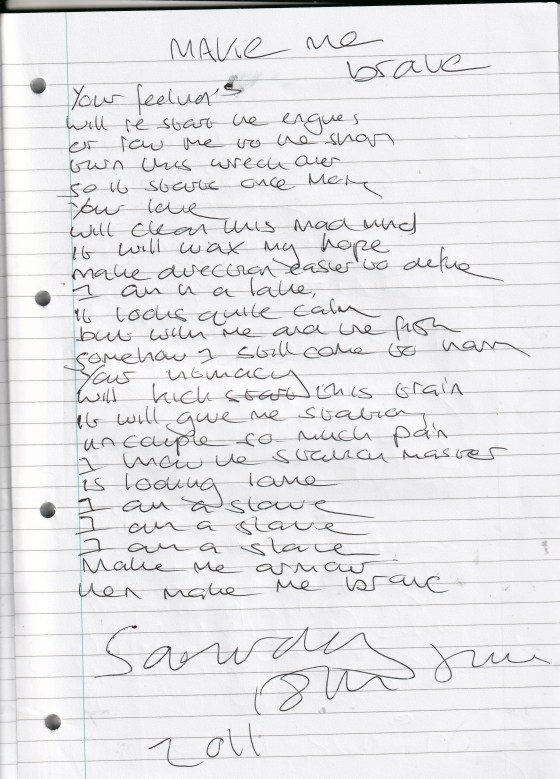 MAKE me
brave
Your feelings
will re start the engines
or row me to the shore
turn this wreck over
so it starts once more
Your love
will clean this mad mind
it will wax my hope
make direction easier to define
I am in a lake,
it looks quite calm
but with me and the fish
somehow I still come to harm
Your intimacy
will kick start this train
it will give me station
uncouple so much pain
I know the station master
is looking
I am a slave
I am a slave
I am a slave
Make me armour
then make me brave
Saturday
18th June
2011